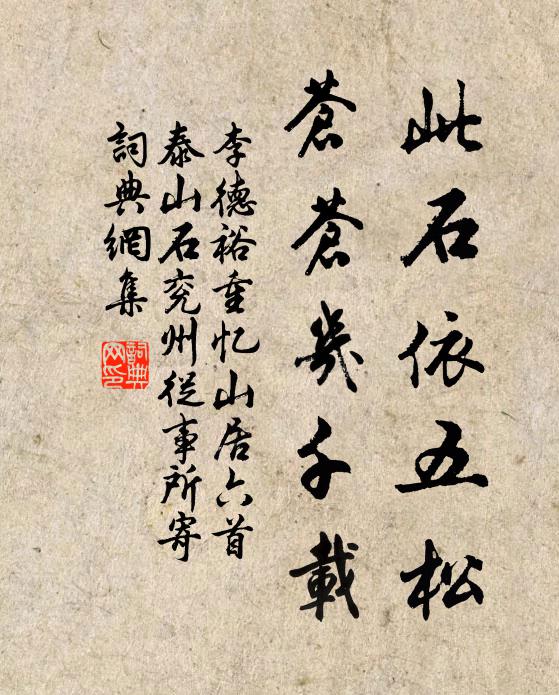 此石依五松
蒼蒼幾千載
李德裕重忆山居六首
泰山石兖州從事所寄
詞典網集
詞典
网印